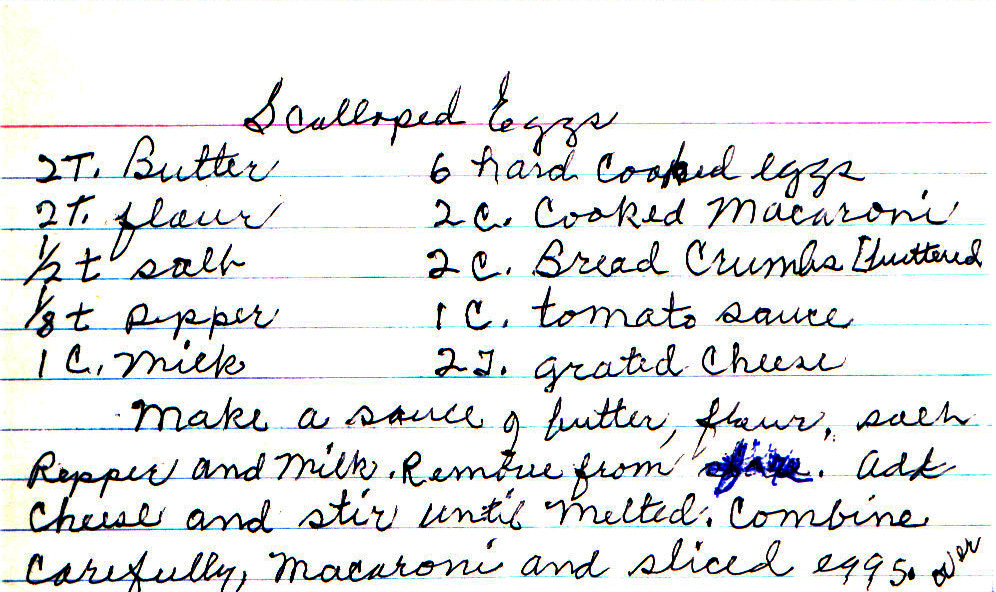 Scalloped Eggs
2T. Butter 6 hard cooked eggs
2T. flour 2 C. Cooked Macaroni
1/2 t salt 2 C. Bread Crumbs [buttered
1/8 t pepper 1 C. tomato sauce
1 C. Milk 2T. grated Cheese
Make a sauce of butter, flour, salt
Pepper and Milk. Remove from fire. Add
Cheese and stir until Melted. Combine
Carefully, Macaroni and sliced eggs. over